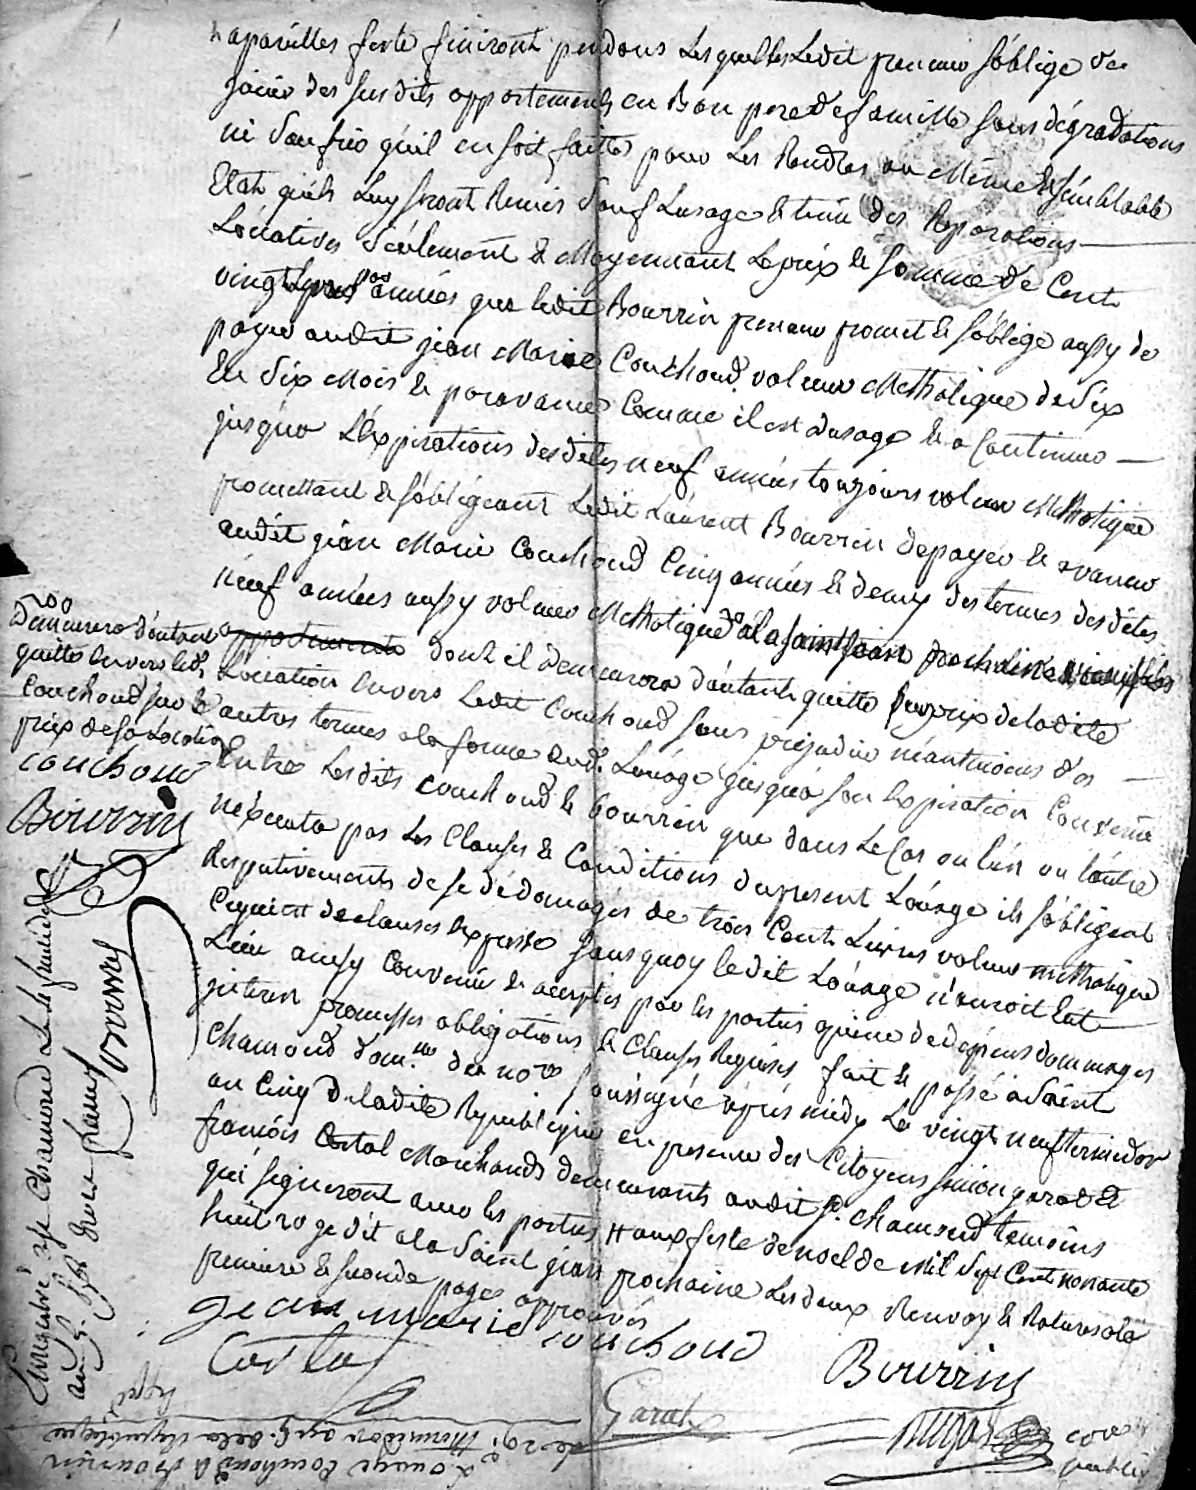 apareilles feste finiront pendans Lesquelles Ledit preneur s'oblige de
joüir des susdits appartements en Bon pere de famille sans dégradations
ni Soufrir qu'il en soit faittes pour Les Rendre au Même & semblable
Etat qu'ils Luy seront Remis Sauf Lusage & tenu des Reparations
Locatives Seulement & Moyennant Leprix & somme de Cent
vingt années que ledit Bourrin preneur promet & s'oblige aussy de
payer audit jean Marie Couchoud valeur Methalique de Six
En Six Mois & par avance Comme il est dusage & a Continuer
jusqu'a L'Expirations desdites neuf années toujours valeur Methalique
promettant & s'obligeant Ledit Laurent Bourrin de payer & avancer
audit jean Marie Couchoud Cinq années & demy des termes desdites
neuf années aussy valeur Methalique a la saint jean prochaine
appartements dont il demeurera d'autant quitte sur prix deladite
Location Envers Ledit Couchoud sans préjudice néantmoins d'es
autres termes a la forme dud. Loüage jusqu'à son Expiration Convenu
Entre Lesdits Couchoud & Bourrin que dans Le Cas ou l'un ou l'autre
n'éxecuta pas Les Clauses & Conditions du present Loüage ils s'obligent
Respectivements de se dédomager de trois Cent Livres valeur methalique
Ce qui est de clauses Expresse sans quoy ledit Loüage n'auroit Eut
Lieu ainsy Convenu & accepté par les parties a peine de dépens dommages
interets promesses obligations & Clauses Requises fait & passé a Saint
Chamond dom.lle du no.re soussigné après midy Le vingt neuf termidor
an Cinq de ladite Republique en presence des Citoyens Simon garat &
francois Costal Marchands demeurants audit St. Chamond temoins
qui signeront avec les parties # aux feste de noel de Mil Sept Cent nonante
huit 20 ge dit a la Saint jean prochaine Les deux Renvoy & Ratures a la
premiere & seconde pages approuvés
jean marie couchoud
Costal
Bourrin
Garat
no.re
public
Demeurera d'autant
quitte Envers led.
Couchoud sur le
prix de sa Location
couchoud
Bourrin
Enregistré a St Chamond Le
an 5.
Loüage Couchoud & Bourrin
de 29. thermidor an 5. de la Republique